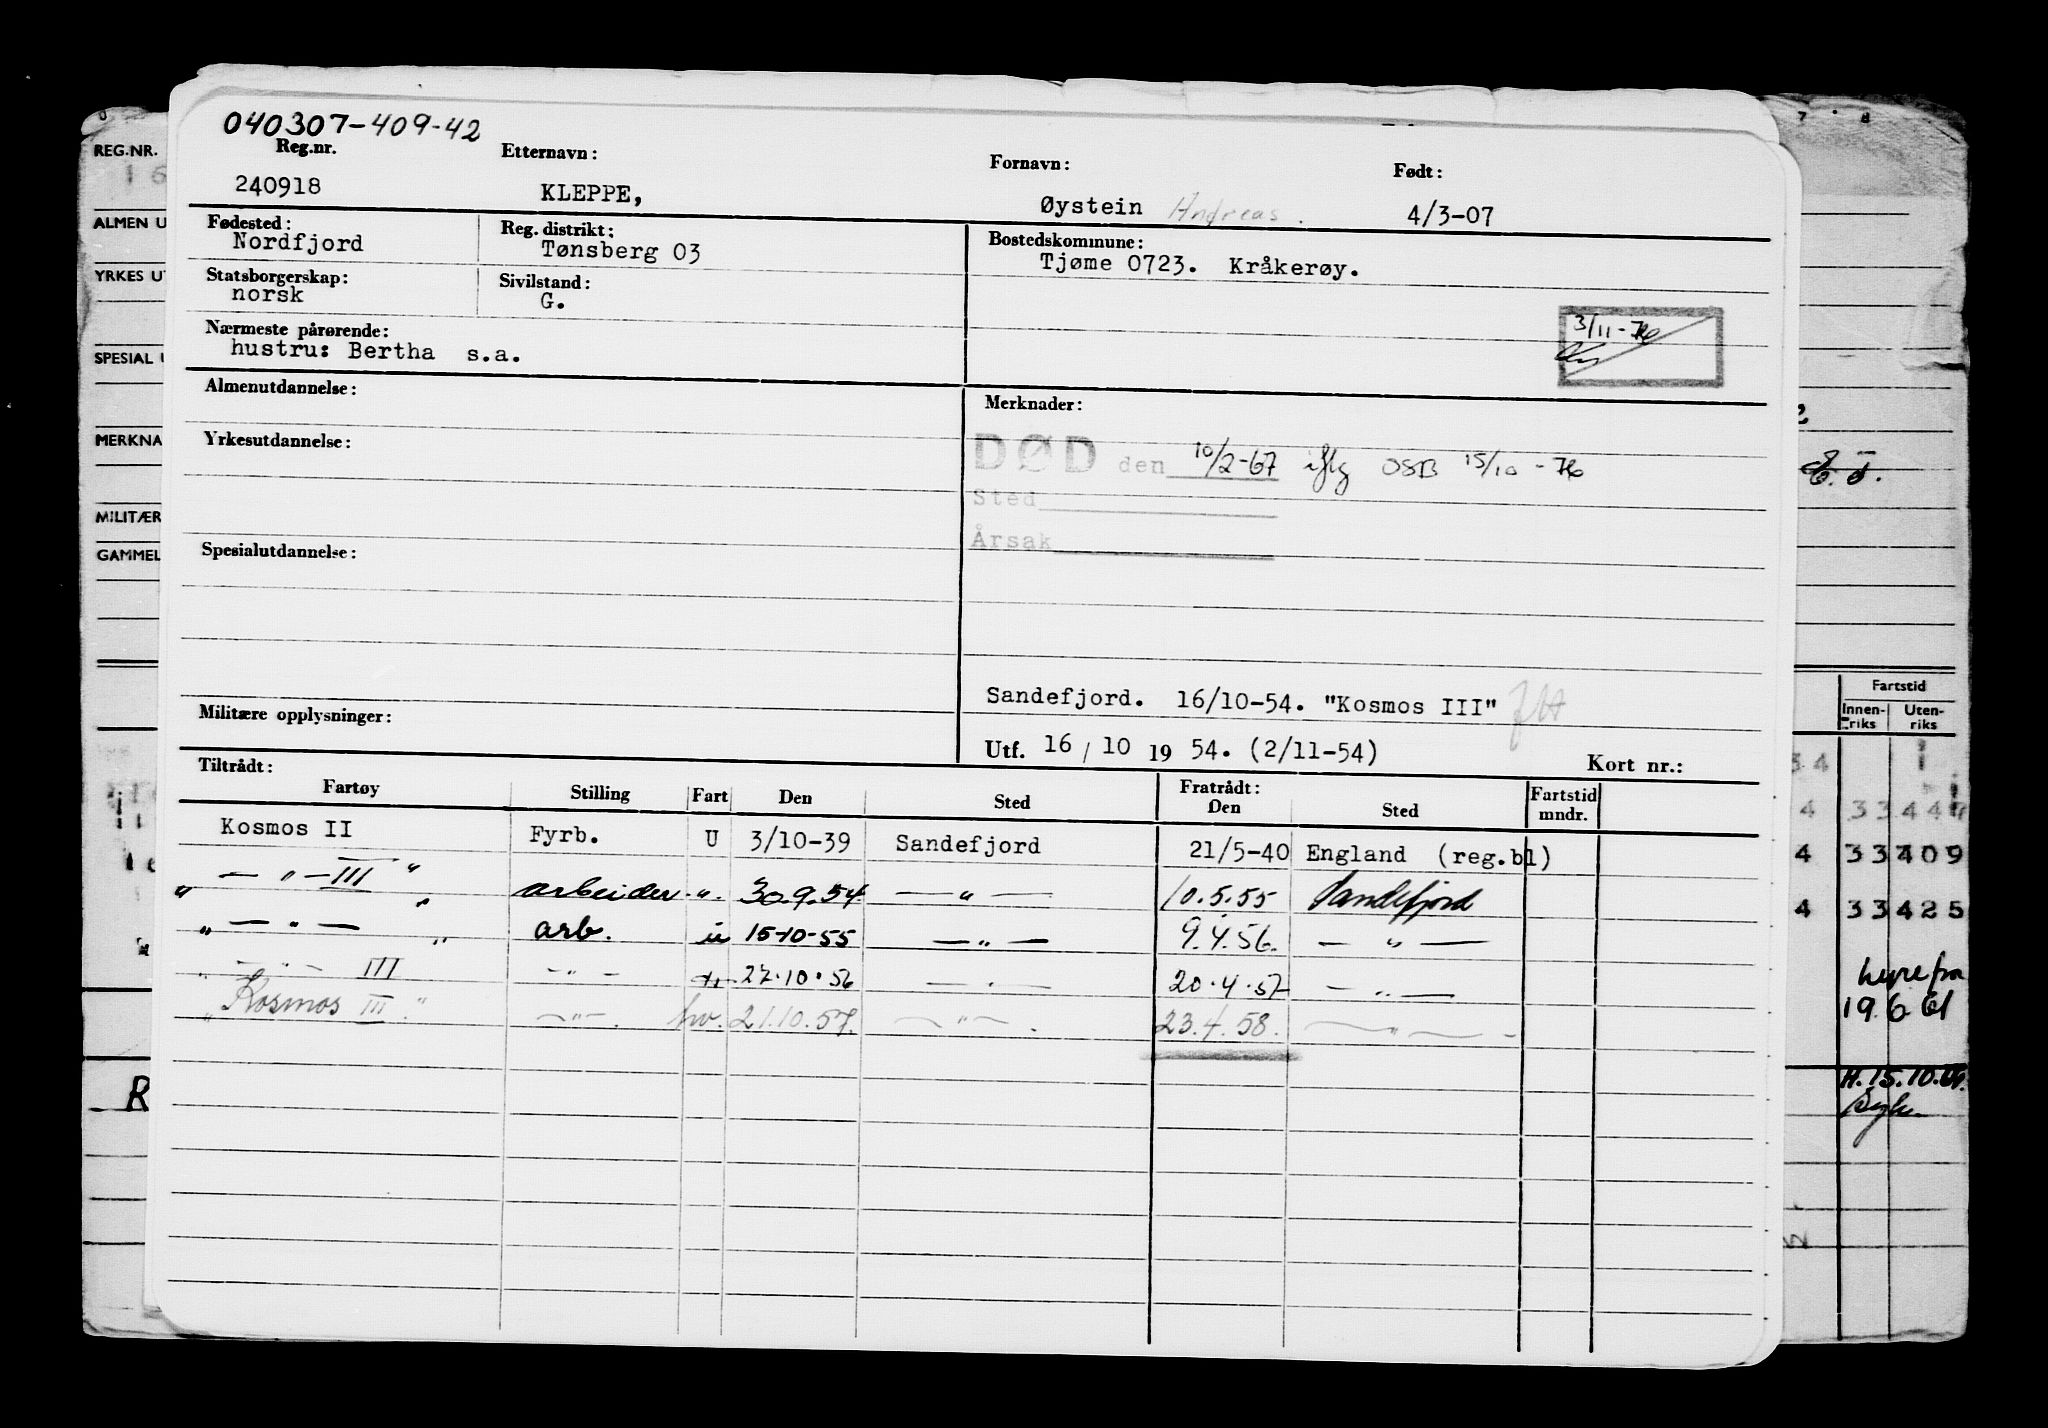 040307-409-42
Reg.nr. Etternavn: Fornavn: Født:
240918 KLEPPE, Øystein Andreas. 4/3-07
Fødested: Reg. distrikt: Bostedskommune:
Nordfjord Tønsberg 03 Tjøme 0723. Kråkerøy.
Statsborgerskap: Sivilstand:
norsk G.
3/11-76
Nærmeste pårørende:
hustru: Bertha s.a.
Almenutdannelse: Merknader:
Yrkesutdannelse:
DØD den 10/2-67 iflg OSB 15/10-76
Sted
Årsak
Spesialutdannelse:
Sandefjord. 16/10-54. "Kosmos III"
Militære opplysninger:
Utf. 16/10 19 54. (2/11-54) Kort nr.:
Tiltrådt: Fratrådt:
Fartøy Stilling Fart Den Sted Den Sted Fartstid mndr.
Kosmos II Fyrb. U 3/10-39 Sandefjord 21/5-40 England (reg.bl)
" — " — III " arbeider " 30.9.54 — " — 10.5.55 Sandefjord
" — " — " arb. u 15-10-55 — " — 9.4.56. — " —
" — " — III — " — 27.10.56 — " — 20.4.57 — " —
" Kosmos III " — " — . hv. 21.10.57. — " — . 23.4.58. — " — -
REG.NR.
16
ALMEN U
YRKES UT
SPESIAL U
MERKNA
MILITÆR
GAMMEL
R
Fartstid
Innen-riks Uten-riks
34
4 33 449
4 33 409
4 33 425
hyre fra
19.6.61